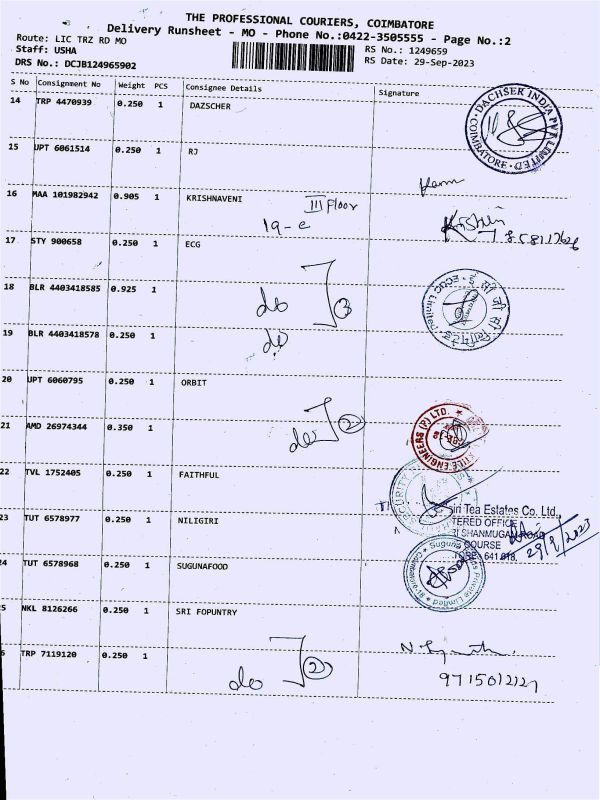 THE PROFESSIONAL COURIERS, COIMBATORE
Delivery Runsheet - MO - Phone No.:0422-3505555 - Page No.:2
Route: LIC TRZ RD MO
RS No.: 1249659
Staff: USHA
RS Date: 29-Sep-2023
DRS No.: DCJB124965902
S No Consignment No Weight PCS Consignee Details Signature
14 TRP 4470939 0.250 1 DAZSCHER
DACHSER INDIA PVT. LIMITED COIMBATORE
15 UPT 6061514 0.250 1 RJ
16 MAA 101982942 0.905 1 KRISHNAVENI III Floor
19-e
17 STY 900658 0.250 1 ECG
18 BLR 4403418585 0.925 1 do 3
19 BLR 4403418578 0.250 1 do
20 UPT 6060795 0.250 1 ORBIT
21 AMD 26974344 0.350 1 do 2
ENGINEERS (P) LTD.
22 TVL 1752405 0.250 1 FAITHFUL
SECURITY
iri Tea Estates Co. Ltd.,
23 TUT 6578977 0.250 1 NILIGIRI
TERED OFFICE
SHANMUGAM ROAD
COURSE
641 018.
29/9/2023
24 TUT 6578968 0.250 1 SUGUNAFOOD
Private Limited
25 NKL 8126266 0.250 1 SRI FOPUNTRY
6 TRP 7119120 0.250 1 do 2
9715012127